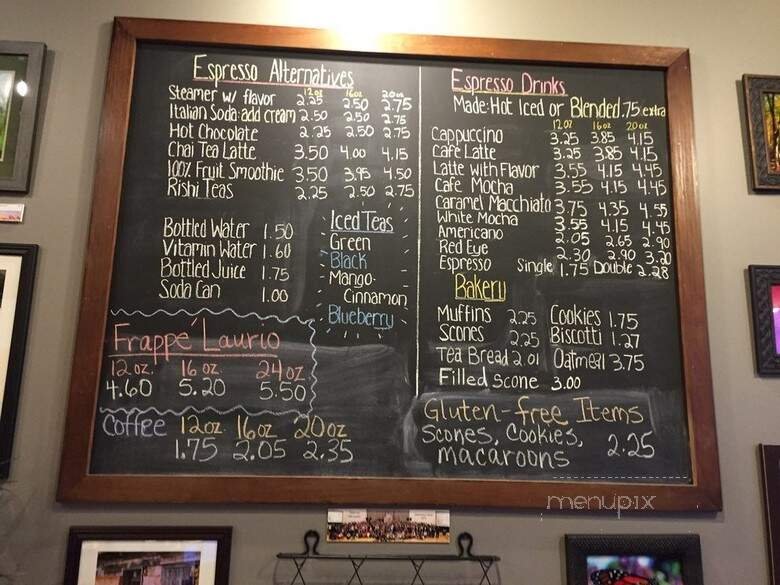 Espresso Alternatives
12oz 16oz 20oz
Steamer w/ flavor 2.25 2.50 2.75
Italian Soda: add cream 2.50 2.50 2.75
Hot Chocolate 2.25 2.50 2.75
Chai Tea Latte 3.50 4.00 4.15
100% Fruit Smoothie 3.50 3.95 4.50
Rishi Teas 2.25 2.50 2.75
Bottled Water 1.50
Vitamin Water 1.60
Bottled Juice 1.75
Soda Can 1.00
Iced Teas
- Green
- Black
- Mango-
Cinnamon
Blueberry
Frappé Laurio
12 oz. 16 oz 24 oz
4.60 5.20 5.50
Coffee 12oz 16oz 20oz
1.75 2.05 2.35
Espresso Drinks
Made: Hot Iced or Blended .75 extra
12oz 16oz 20oz
Cappuccino 3.25 3.85 4.15
Cafe Latte 3.25 3.85 4.15
Latte with Flavor 3.55 4.15 4.45
Cafe Mocha 3.55 4.15 4.45
Caramel Macchiato 3.75 4.35 4.55
White Mocha 3.55 4.15 4.45
Americano 2.05 2.65 2.90
Red Eye 2.30 2.90 3.20
Espresso Single 1.75 Double 2.28
Bakery
Muffins 2.25 Cookies 1.75
Scones 2.25 Biscotti 1.27
Tea Bread 2.01 Oatmeal 3.75
Filled scone 3.00
Gluten-free Items
Scones, Cookies,
macaroons 2.25
menupix